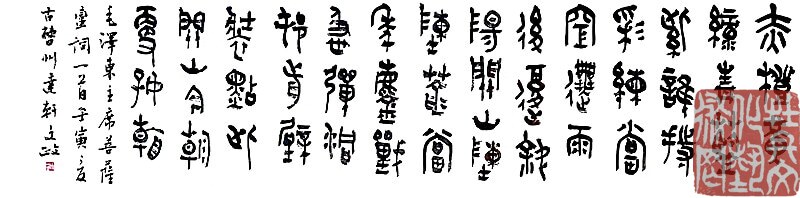 赤橙黃
綠青藍
紫誰持
彩練當
空舞雨
後復斜
陽關山陣
陣蒼當
年鏖戰
急彈洞
前村壁
裝點此
關山今朝
更好看
毛澤東主席菩薩
蠻詞一首壬寅夏
古營州達軒文